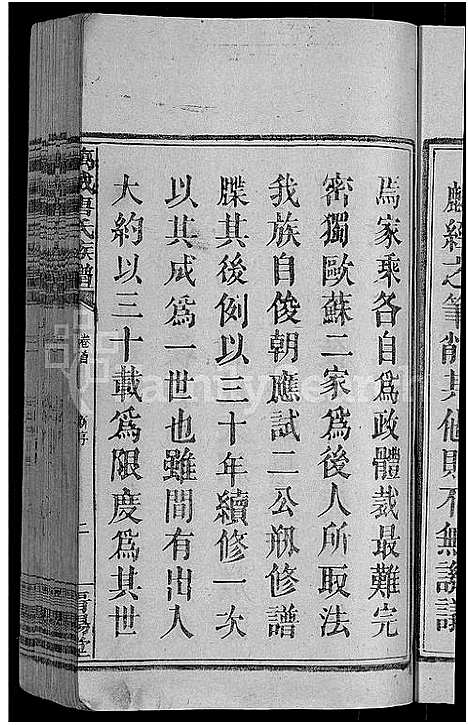 麟經之筆削其他則不無議
焉家乘各自為政體裁最難完
密獨歐蘇二家為後人所取法
我族自俊朝應試二公刱修譜
牒其後例以三十年續修一次
以其成為一世也雖間有出入
大約以三十載為限度為其世
唐氏族譜
卷首
二